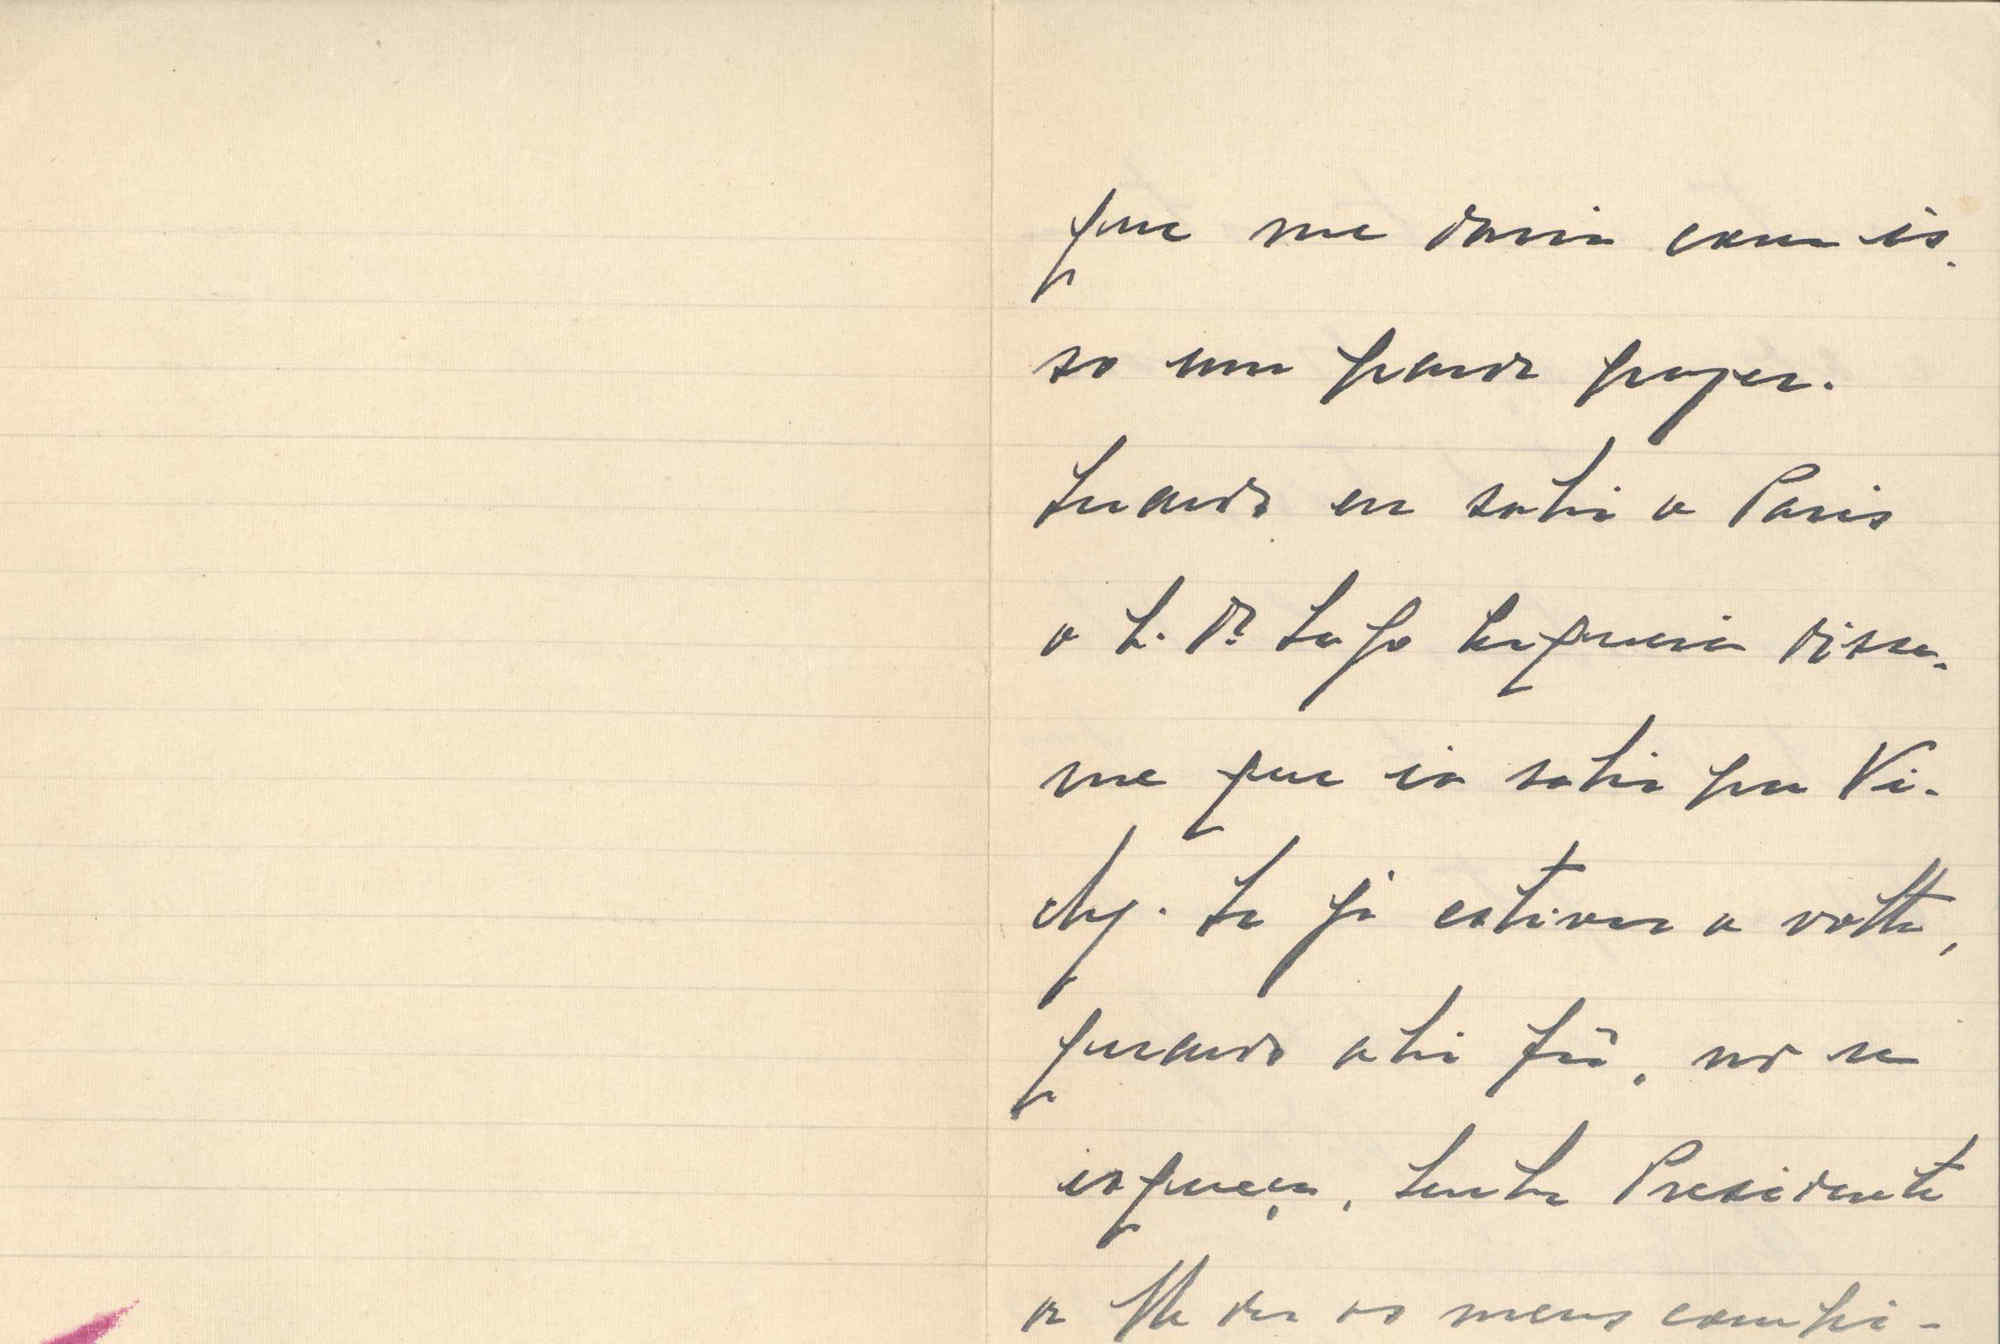 que me daria com is-
so um grande prazer.
Quando eu sahi a Paris
o S. Dr. Lafo Cerqueira disse-
me que ia sahir pra Vi-
chy. Se já estiver a volta,
quando ahi fôr, não se
esqueça, Senhor Presidente
de lhe dar os meus compri-